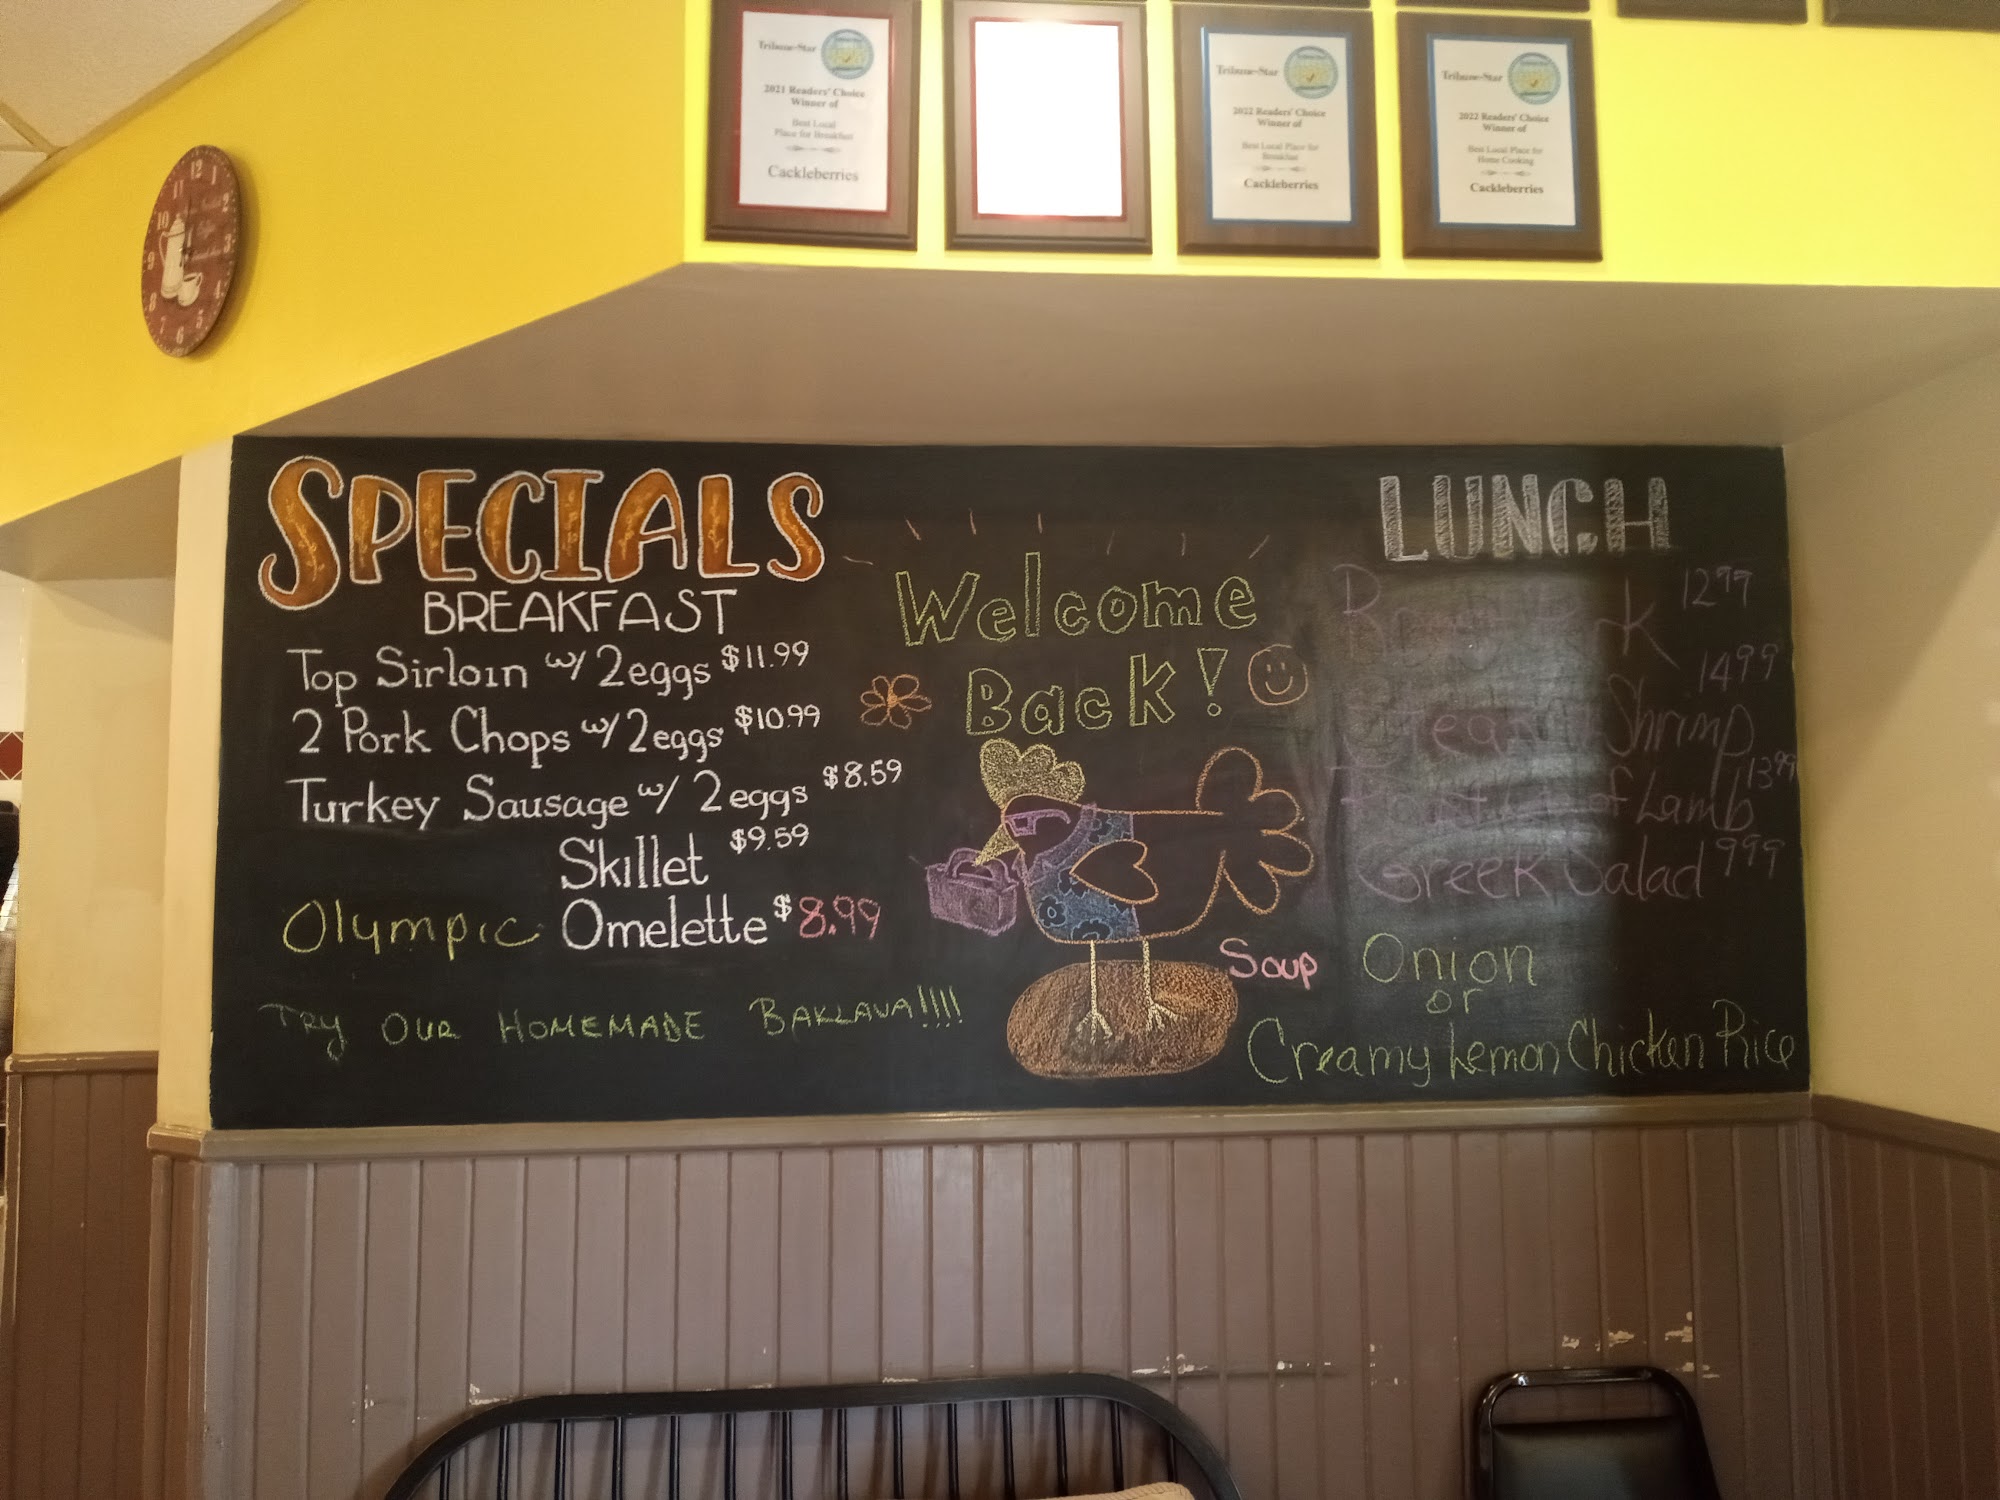 Tribune-Star
2021 Readers' Choice
Winner of
Best Local
Place for Breakfast
Cackleberries
Tribune-Star
2022 Readers' Choice
Winner of
Best Local Place for
Breakfast
Cackleberries
Tribune-Star
2022 Readers' Choice
Winner of
Best Local Place for
Home Cooking
Cackleberries
12
1
2
3
4
5
6
7
8
9
10
11
SPECIALS
BREAKFAST
Top Sirloin w/ 2eggs $11.99
2 Pork Chops w/ 2eggs $10.99
Turkey Sausage w/ 2eggs $8.59
Skillet $9.59
Olympic Omelette $8.99
TRY OUR HOMEMADE BAKLAVA!!!!
Welcome
Back!
LUNCH
12.99
14.99
Shrimp
13.99
of Lamb
Greek Salad 9.99
Soup Onion
or
Creamy Lemon Chicken Rice